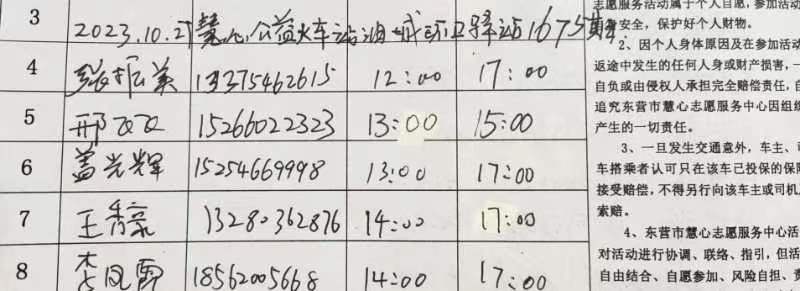 3
2023.10.27慧心公益火车站油城环卫驿站1675期
4 张振美 13375462615 12:00 17:00
5 邢 15266022323 13:00 15:00
6 盖光辉 15254669998 13:00 17:00
7 王秀 13280362876 14:00 17:00
8 李凤霞 18562005668 14:00 17:00
志愿服务活动属于个人自愿,参加活动
安全,保护好个人财物。
2、因个人身体原因及在参加活动
返途中发生的任何人身或财产损害,一
自负或由侵权人承担完全赔偿责任,自
追究东营市慧心志愿服务中心因组织
产生的一切责任。
3、一旦发生交通意外,车主、司
车搭乘者认可只在该车已投保的保险
接受赔偿,不得另行向该车主或司机
索赔。
4、东营市慧心志愿服务中心活
对活动进行协调、联络、指引,但活
自由结合、自愿参加、风险自担、责